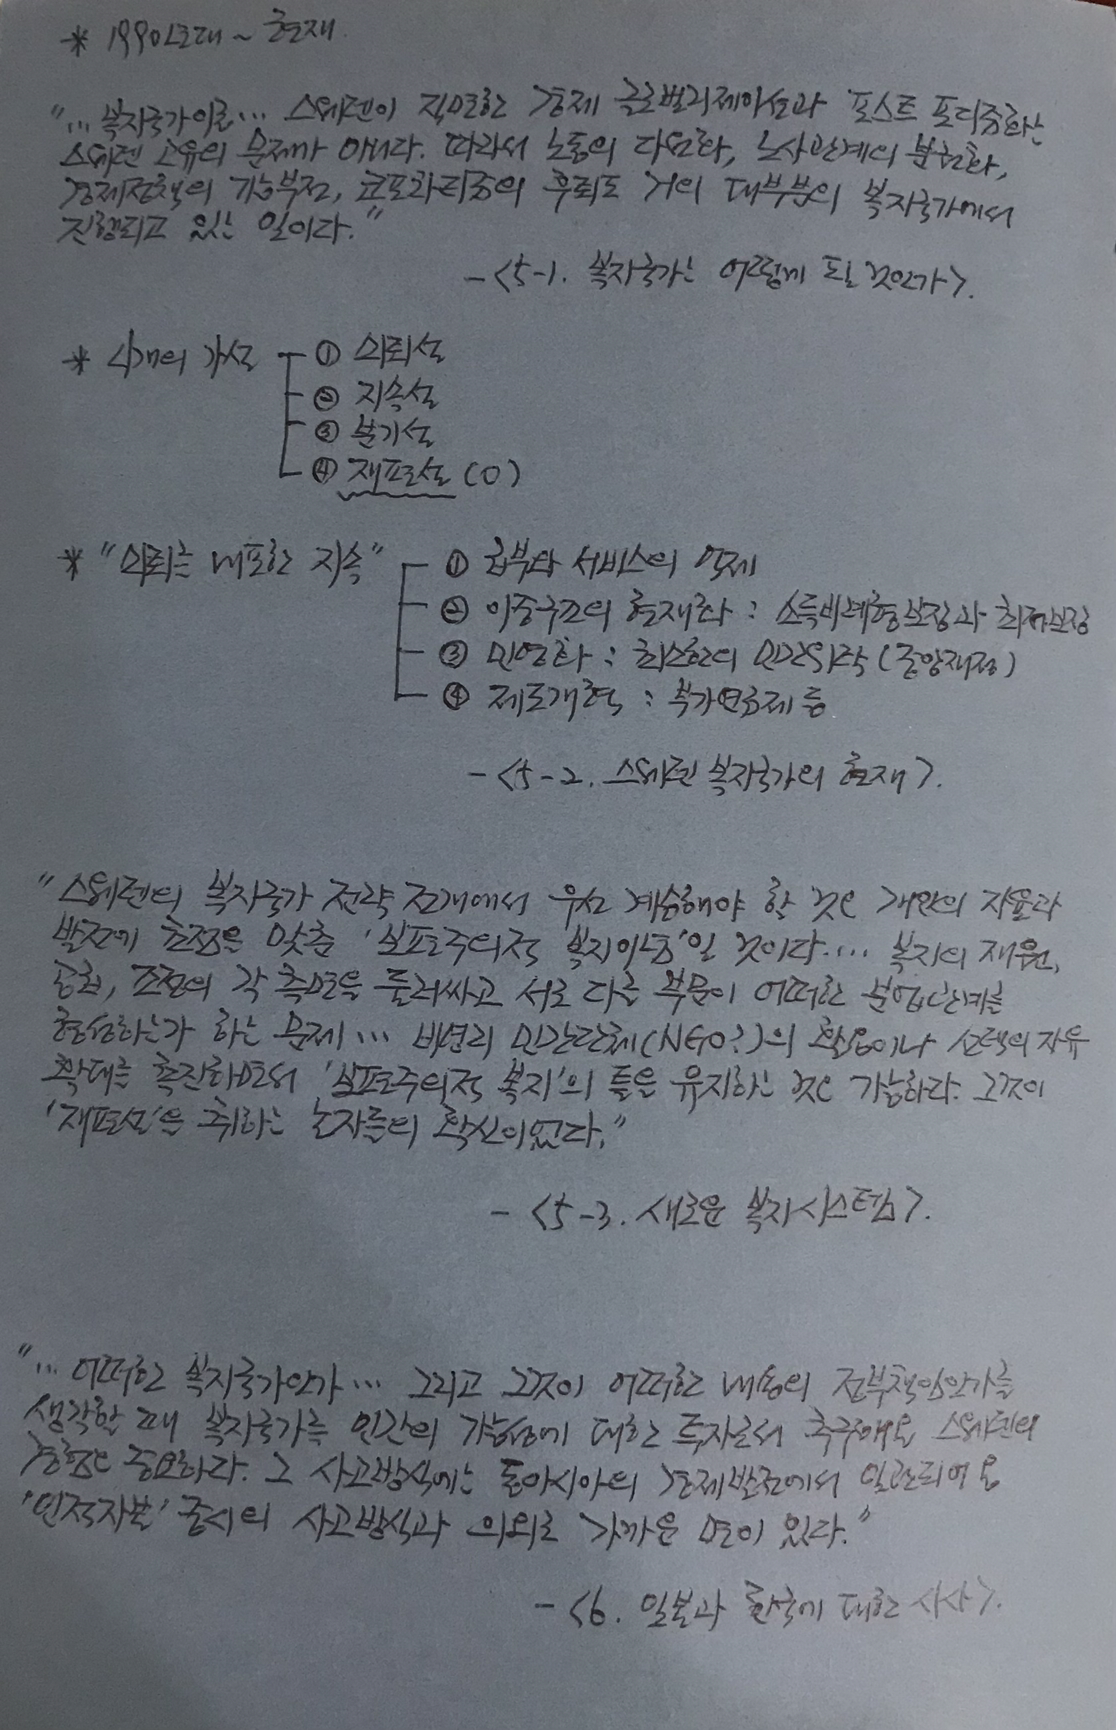 * 1990년대 ~ 현재.
"... 복지국가이론... 스웨덴이 직면한 경제 글로벌리제이션과 포스트 포디즘화는
스웨덴 고유의 문제가 아니다. 따라서 노동의 다양화, 노사관계의 분권화,
경제정책의 기능부전, 코포라티즘의 후퇴도 거의 대부분의 복지국가에서
진행되고 있는 일이다."
- <5-1. 복지국가는 어떻게 될 것인가>.
* 4개의 가설
① 쇠퇴설
② 지속설
③ 분기설
④ 재편설 (O)
* "쇠퇴를 내포한 지속"
① 급부와 서비스의 억제
② 이중구조의 현재화 : 소득비례형보장과 최저보장
③ 민영화 : 최소한의 민간위탁 (중앙재정)
④ 제도개혁 : 부가연금제 등
- <5-2. 스웨덴 복지국가의 현재>.
"스웨덴의 복지국가 전략 전개에서 우선 계승해야 할 것은 개인의 자율과
발전에 초점을 맞춘 '보편주의적 복지이념'일 것이다.... 복지의 재원,
공급, 조정의 각 측면을 둘러싸고 서로 다른 부문이 어떠한 분업관계를
형성하는가 하는 문제... 비영리 민간단체(NGO?)의 활용이나 선택의 자유
확대를 촉진하면서 '보편주의적 복지'의 틀을 유지하는 것은 가능하다. 그것이
'재편설'을 취하는 논자들의 확신이었다."
- <5-3. 새로운 복지시스템>.
"... 어떠한 복지국가인가... 그리고 그것이 어떠한 내용의 정부책임인가를
생각할 때 복지국가를 인간의 가능성에 대한 투자로서 추구해온 스웨덴의
경험은 중요하다. 그 사고방식에는 동아시아의 경제발전에서 일관되어 온
'인적자본' 중시의 사고방식과 의외로 가까운 면이 있다."
- <6. 일본과 한국에 대한 시사>.